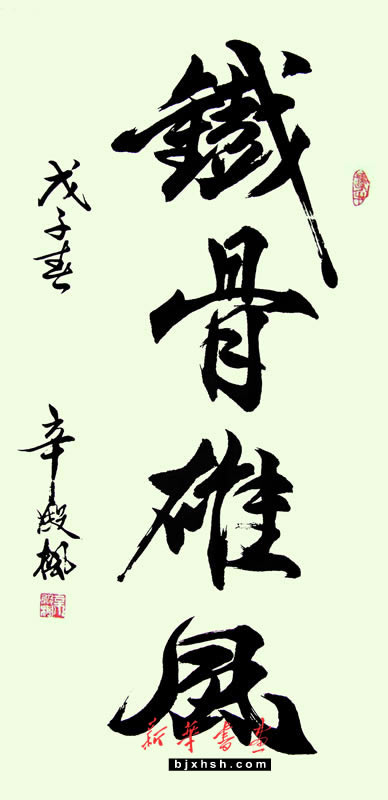 鐵骨雄風
戊子春
辛殿楓
新華書畫
bjxhsh.com